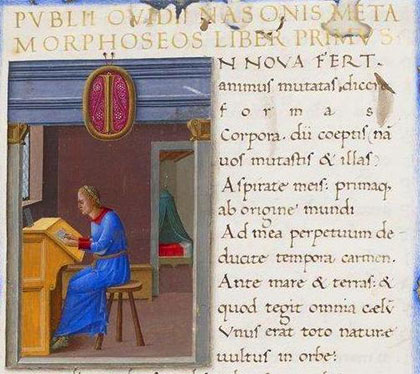 PVBLII OVIDII NASONIS META
MORPHOSEOS LIBER PRIMVS:
I
N NOVA FERT.
animus mutatas, dicere
f o r m a s
Corpora. dii coeptis (nā
uos mutastis & illas)
Aspirate meis: primaq;
ab origine mundi
Ad mea perpetuum de
ducite tempora carmen.
Ante mare & terras: &
quod tegit omnia cęlū
Vnus erat toto nature
uultus in orbe: